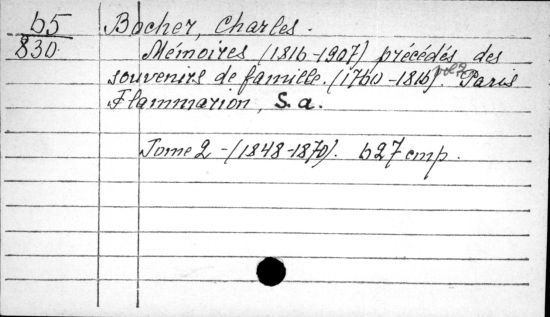 65
830.
Bocher, Charles.
Mémoires (1816-1907) précédés des
souvenirs de famille. (1760-1816). Paris
Flammarion, S.a.
Tome 2 - (1848-1870). 627 cmp.